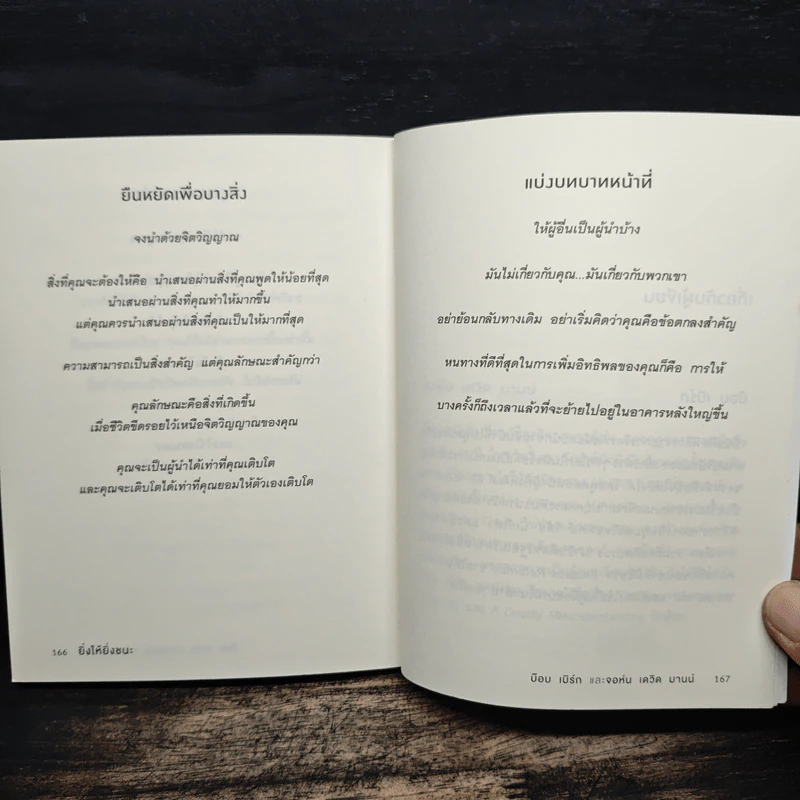 ยืนหยัดเพื่อบางสิ่ง
จงนำด้วยจิตวิญญาณ
สิ่งที่คุณจะต้องให้คือ นำเสนอผ่านสิ่งที่คุณพูดให้น้อยที่สุด
นำเสนอผ่านสิ่งที่คุณทำให้มากขึ้น
แต่คุณควรนำเสนอผ่านสิ่งที่คุณเป็นให้มากที่สุด
ความสามารถเป็นสิ่งสำคัญ แต่คุณลักษณะสำคัญกว่า
คุณลักษณะคือสิ่งที่เกิดขึ้น
เมื่อชีวิตขีดรอยไว้เหนือจิตวิญญาณของคุณ
คุณจะเป็นผู้นำได้เท่าที่คุณเติบโต
และคุณจะเติบโตได้เท่าที่คุณยอมให้ตัวเองเติบโต
166 ยิ่งให้ยิ่งชนะ
แบ่งบทบาทหน้าที่
ให้ผู้อื่นเป็นผู้นำบ้าง
มันไม่เกี่ยวกับคุณ...มันเกี่ยวกับพวกเขา
อย่าย้อนกลับทางเดิม อย่าเริ่มคิดว่าคุณคือข้อตกลงสำคัญ
หนทางที่ดีที่สุดในการเพิ่มอิทธิพลของคุณก็คือ การให้
บางครั้งก็ถึงเวลาแล้วที่จะย้ายไปอยู่ในอาคารหลังใหญ่ขึ้น
บ็อบ เบิร์ก และจอห์น เดวิด มานน์ 167